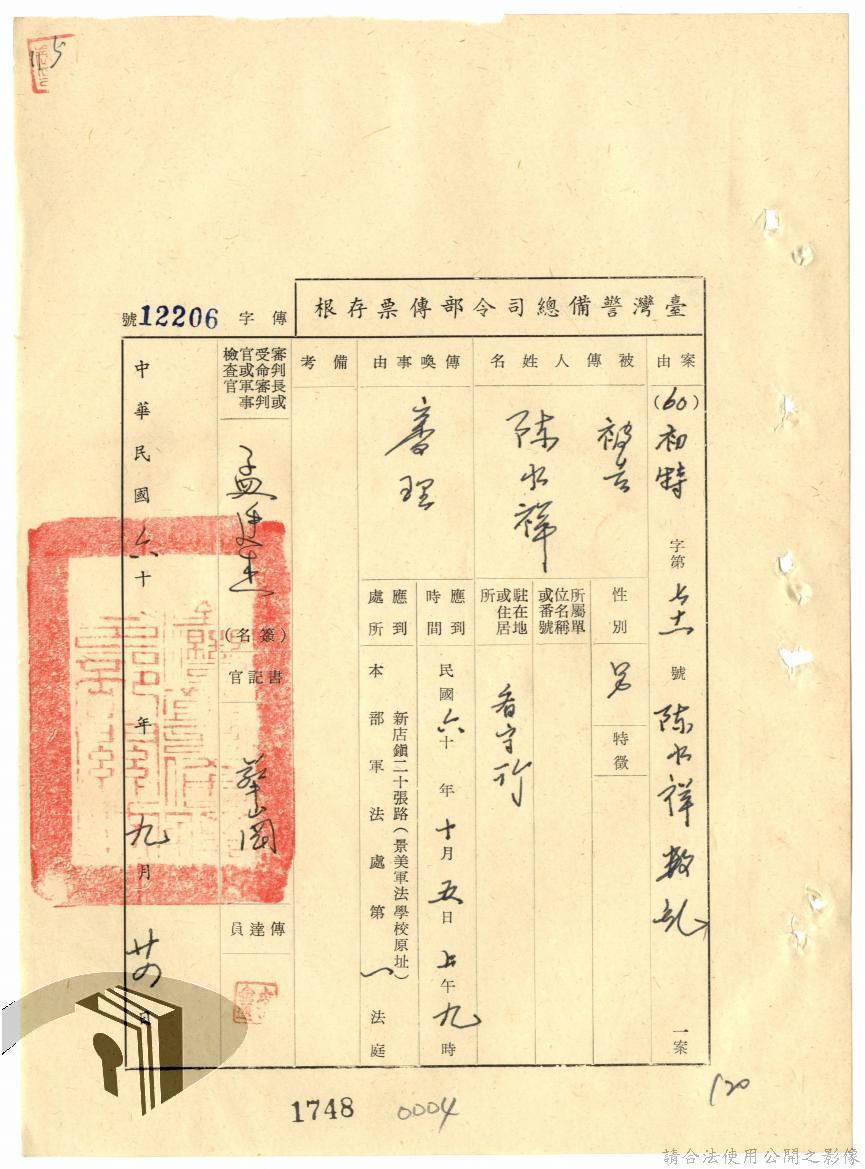 臺灣警備總司令部傳票存根
傳字
12206號
案由
(60)初特字第 號陳水祥叛乱一案
被傳人姓名
被告
陳水祥
性別
男
特徵
所屬單位名稱或番號
駐在地或住居所
看守所
傳喚事由
審理
應到時間
民國六十年十月五日上午九時
應到處所
新店鎮二十張路(景美軍法學校原址)
本部軍法處第一法庭
備考
審判長或受命審判官或軍事檢查官
孟廷杰
(簽名)
書記官
傳達員
中華民國六十年九月廿四日
1748
0004
120
請合法使用公開之影像